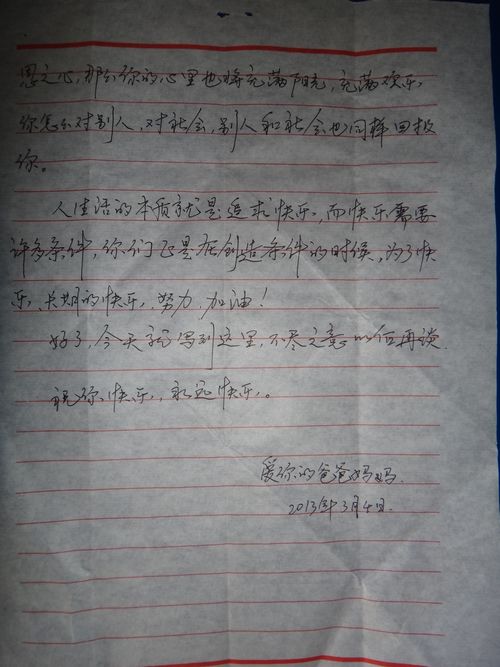 恩之心，那么你的心里也将充满阳光，充满欢乐，
你怎么对别人，对社会，别人和社会也同样回报
你。
人生活的本质就是追求快乐，而快乐需要
许多条件，你们正是在创造条件的时候，为了快
乐、长期的快乐，努力，加油！
好了，今天就写到这里，不尽之意以后再谈。
祝你快乐，永远快乐。
爱你的爸爸妈妈
2013年3月4日